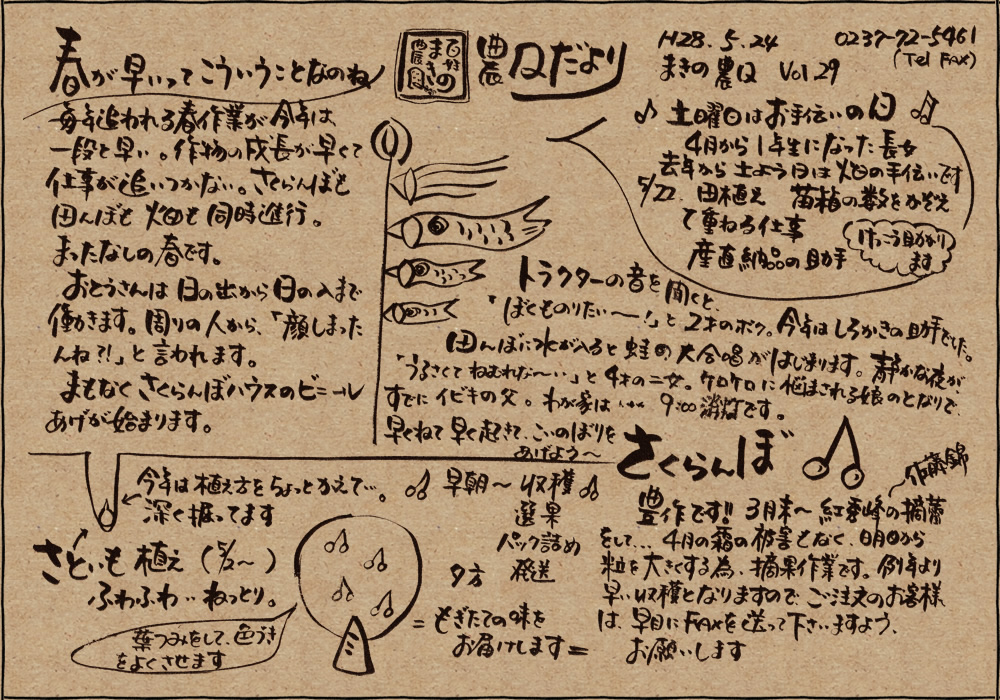 春が早いってこういうことなのね
毎年追われる春作業が今年は
一段と早い。作物の成長が早くて
仕事が追いつかない。さくらんぼも
田んぼも畑も同時進行。
まったなしの春です。
おとうさんは日の出から日の入まで
働きます。周りの人から、「顔しまった
んね?!」と言われます。
まもなくさくらんぼハウスのビニール
あげが始まります。
百姓
まきの
農園
農园だより
H28.5.24
まきの農园 Vol 29
0237-72-5461
(Tel FAX)
♪土曜日はお手伝いの日♪
4月から1年生になった長女
去年から土よう日は畑の手伝いです
5/22 田植え 苗箱の数をかぞえ
て重ねる仕事
産直納品の助手
けっこう助かり
ます
トラクターの音を聞くと、
「ぼくものりたい〜!」と2才のボク。今年はしろかきの助手でした。
田んぼに水が入ると蛙の大合唱がはじまります。静かな夜が
「うるさくてねむれな〜い」と4才の二女。ケロケロに悩まされる娘のとなりで、
すでにイビキの父。わが家は… 9:00消灯です。
早くねて早く起きて、こいのぼりを
あげよう〜
今年は植え方をちょっとかえて…。
深く掘ってます
さといも植え(5/2〜)
ふわふわ…ねっとり。
葉つみをして、色づき
をよくさせます
早朝〜収穫
選果
パック詰め
夕方 発送
=もぎたての味を
お届けします=
さくらんぼ
佐藤錦
豊作です!! 3月末〜紅秀峰の摘蕾
をして… 4月の霜の被害もなく、明日から
粒を大きくする為、摘果作業です。例年より
早い収穫となりますので、ご注文のお客様
は、早目にFAXを送って下さいますよう、
お願いします